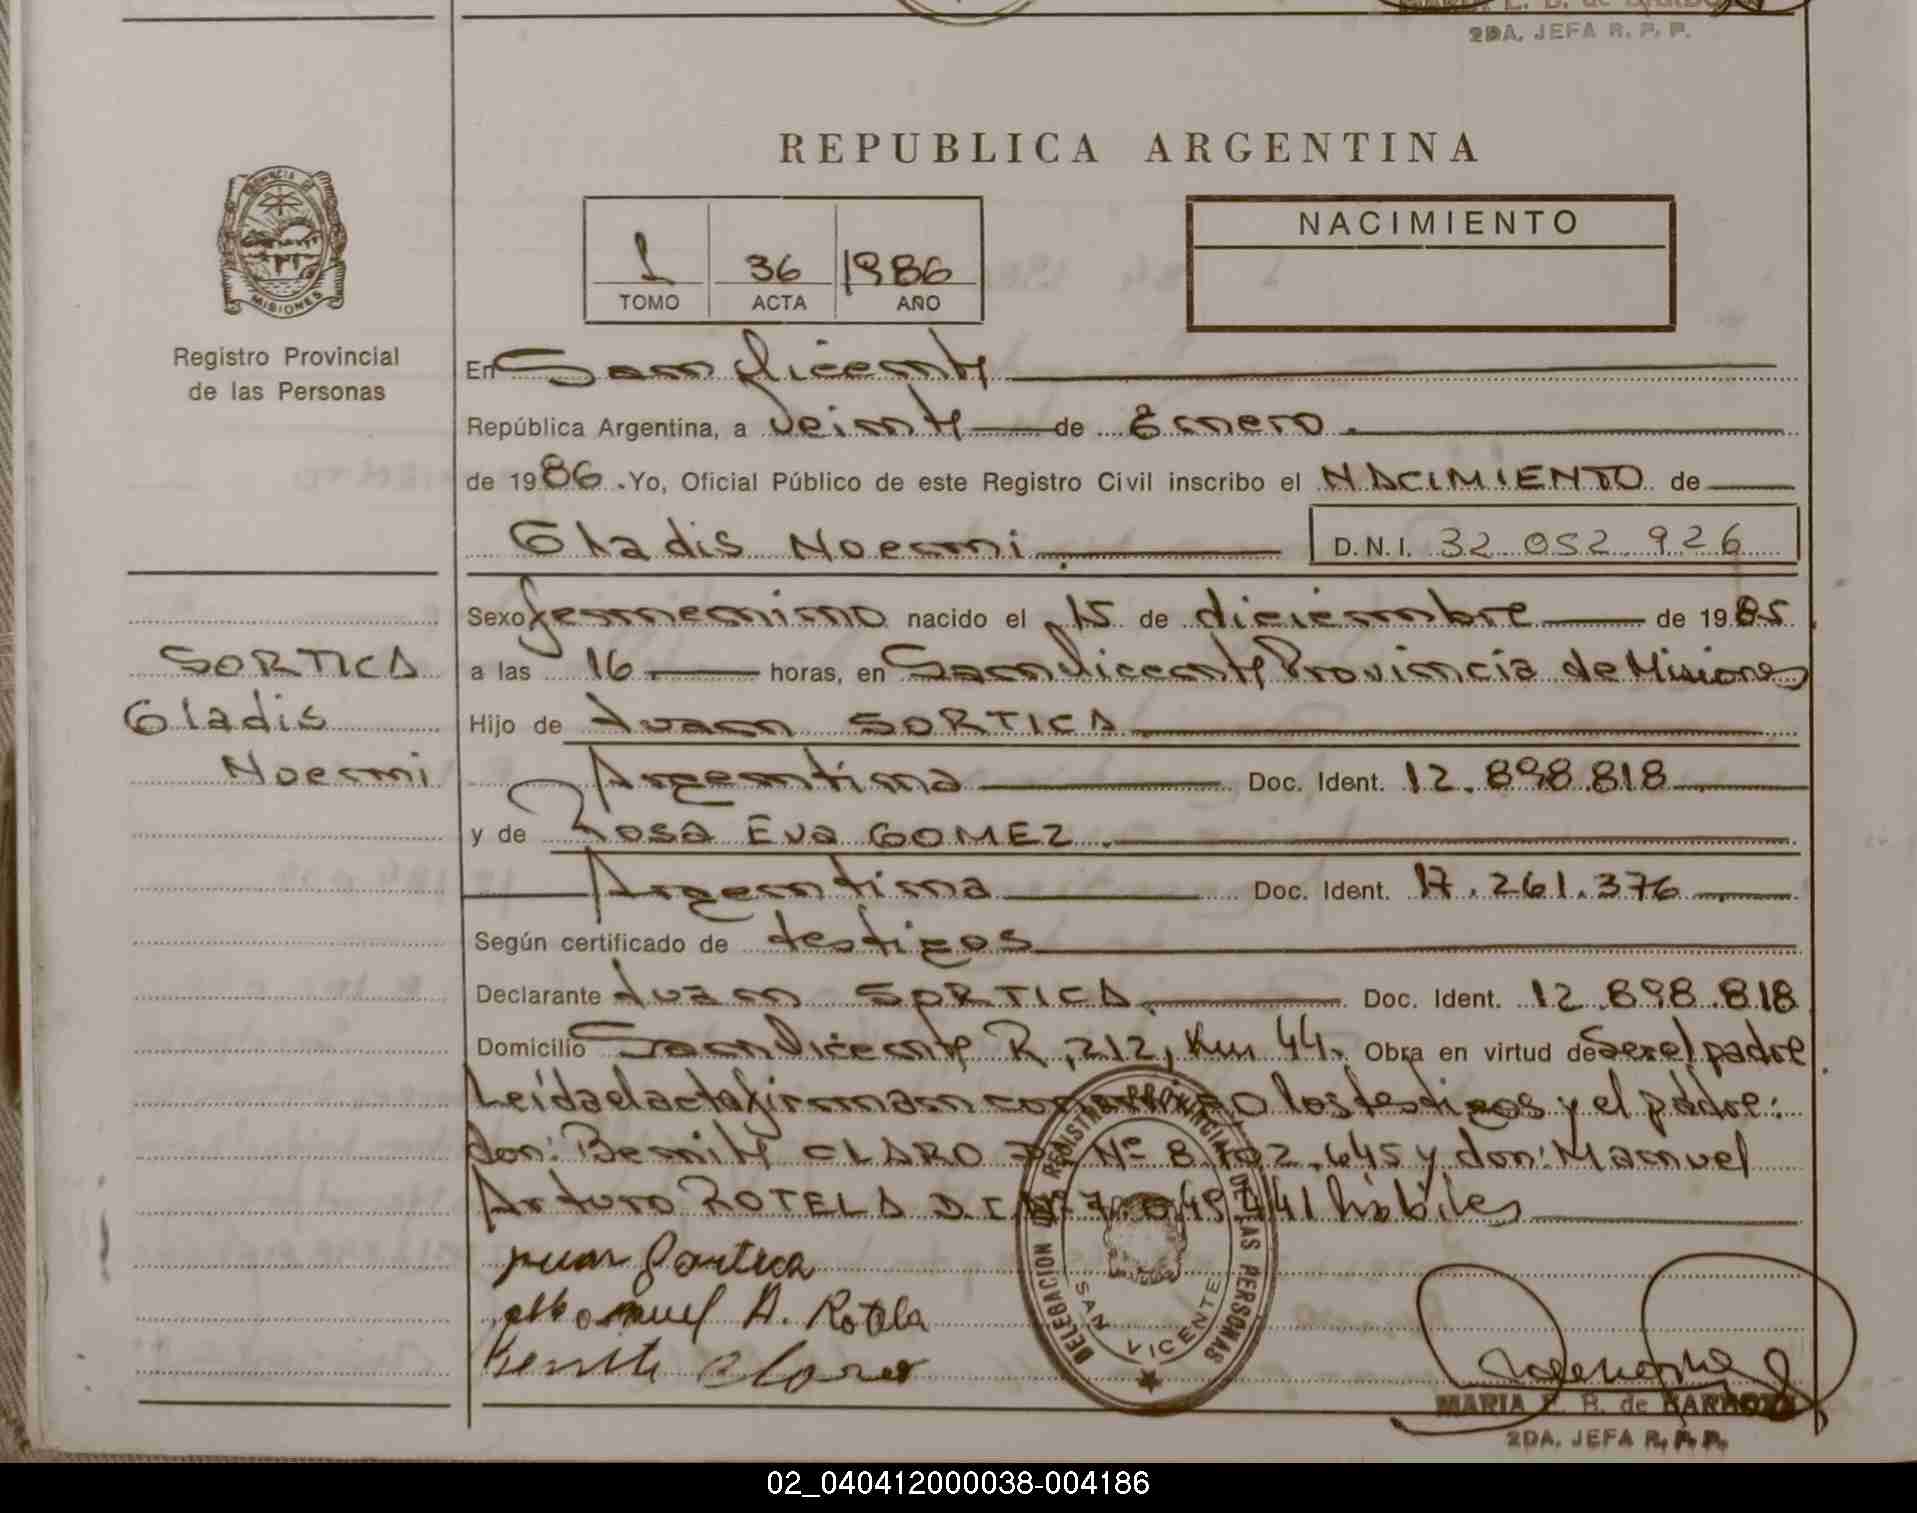 2DA. JEFA R. P. P.
REPUBLICA ARGENTINA
PROVINCIA DE
MISIONES
Registro Provincial
de las Personas
1 36 1986
TOMO ACTA AÑO
NACIMIENTO
En San Vicente
República Argentina, a Veinte de Enero.
de 1986. Yo, Oficial Público de este Registro Civil inscribo el NACIMIENTO de
Gladis Noemi. D.N.I. 32.052.926
Sexo femenino nacido el 15 de diciembre de 1985
SORTICA
Gladis
Noemi
a las 16 horas, en San Vicente Provincia de Misiones
Hijo de Juan SORTICA
Argentina Doc. Ident. 12.898.818
y de Rosa Eva GOMEZ.
Argentina Doc. Ident. 17.261.376
Según certificado de testigos
Declarante Juan SORTICA. Doc. Ident. 12.898.818
Domicilio San Vicente R, 212, Km 44. Obra en virtud de Ser el padre
Leída el acta firman conmigo los testigos y el padre:
don: Benite CLARO Nº 8.702.645 y don: Manuel
Arturo ROTELA D.I. Nº 7.045.441 hábiles
Juan Sortica
Manuel A. Rotela
Benite Claro
DELEGACION REGISTRO PROVINCIAL DE LAS PERSONAS
SAN VICENTE
MARIA E. B. de BARBOZA
2DA. JEFA R. P. P.
02_040412000038-004186